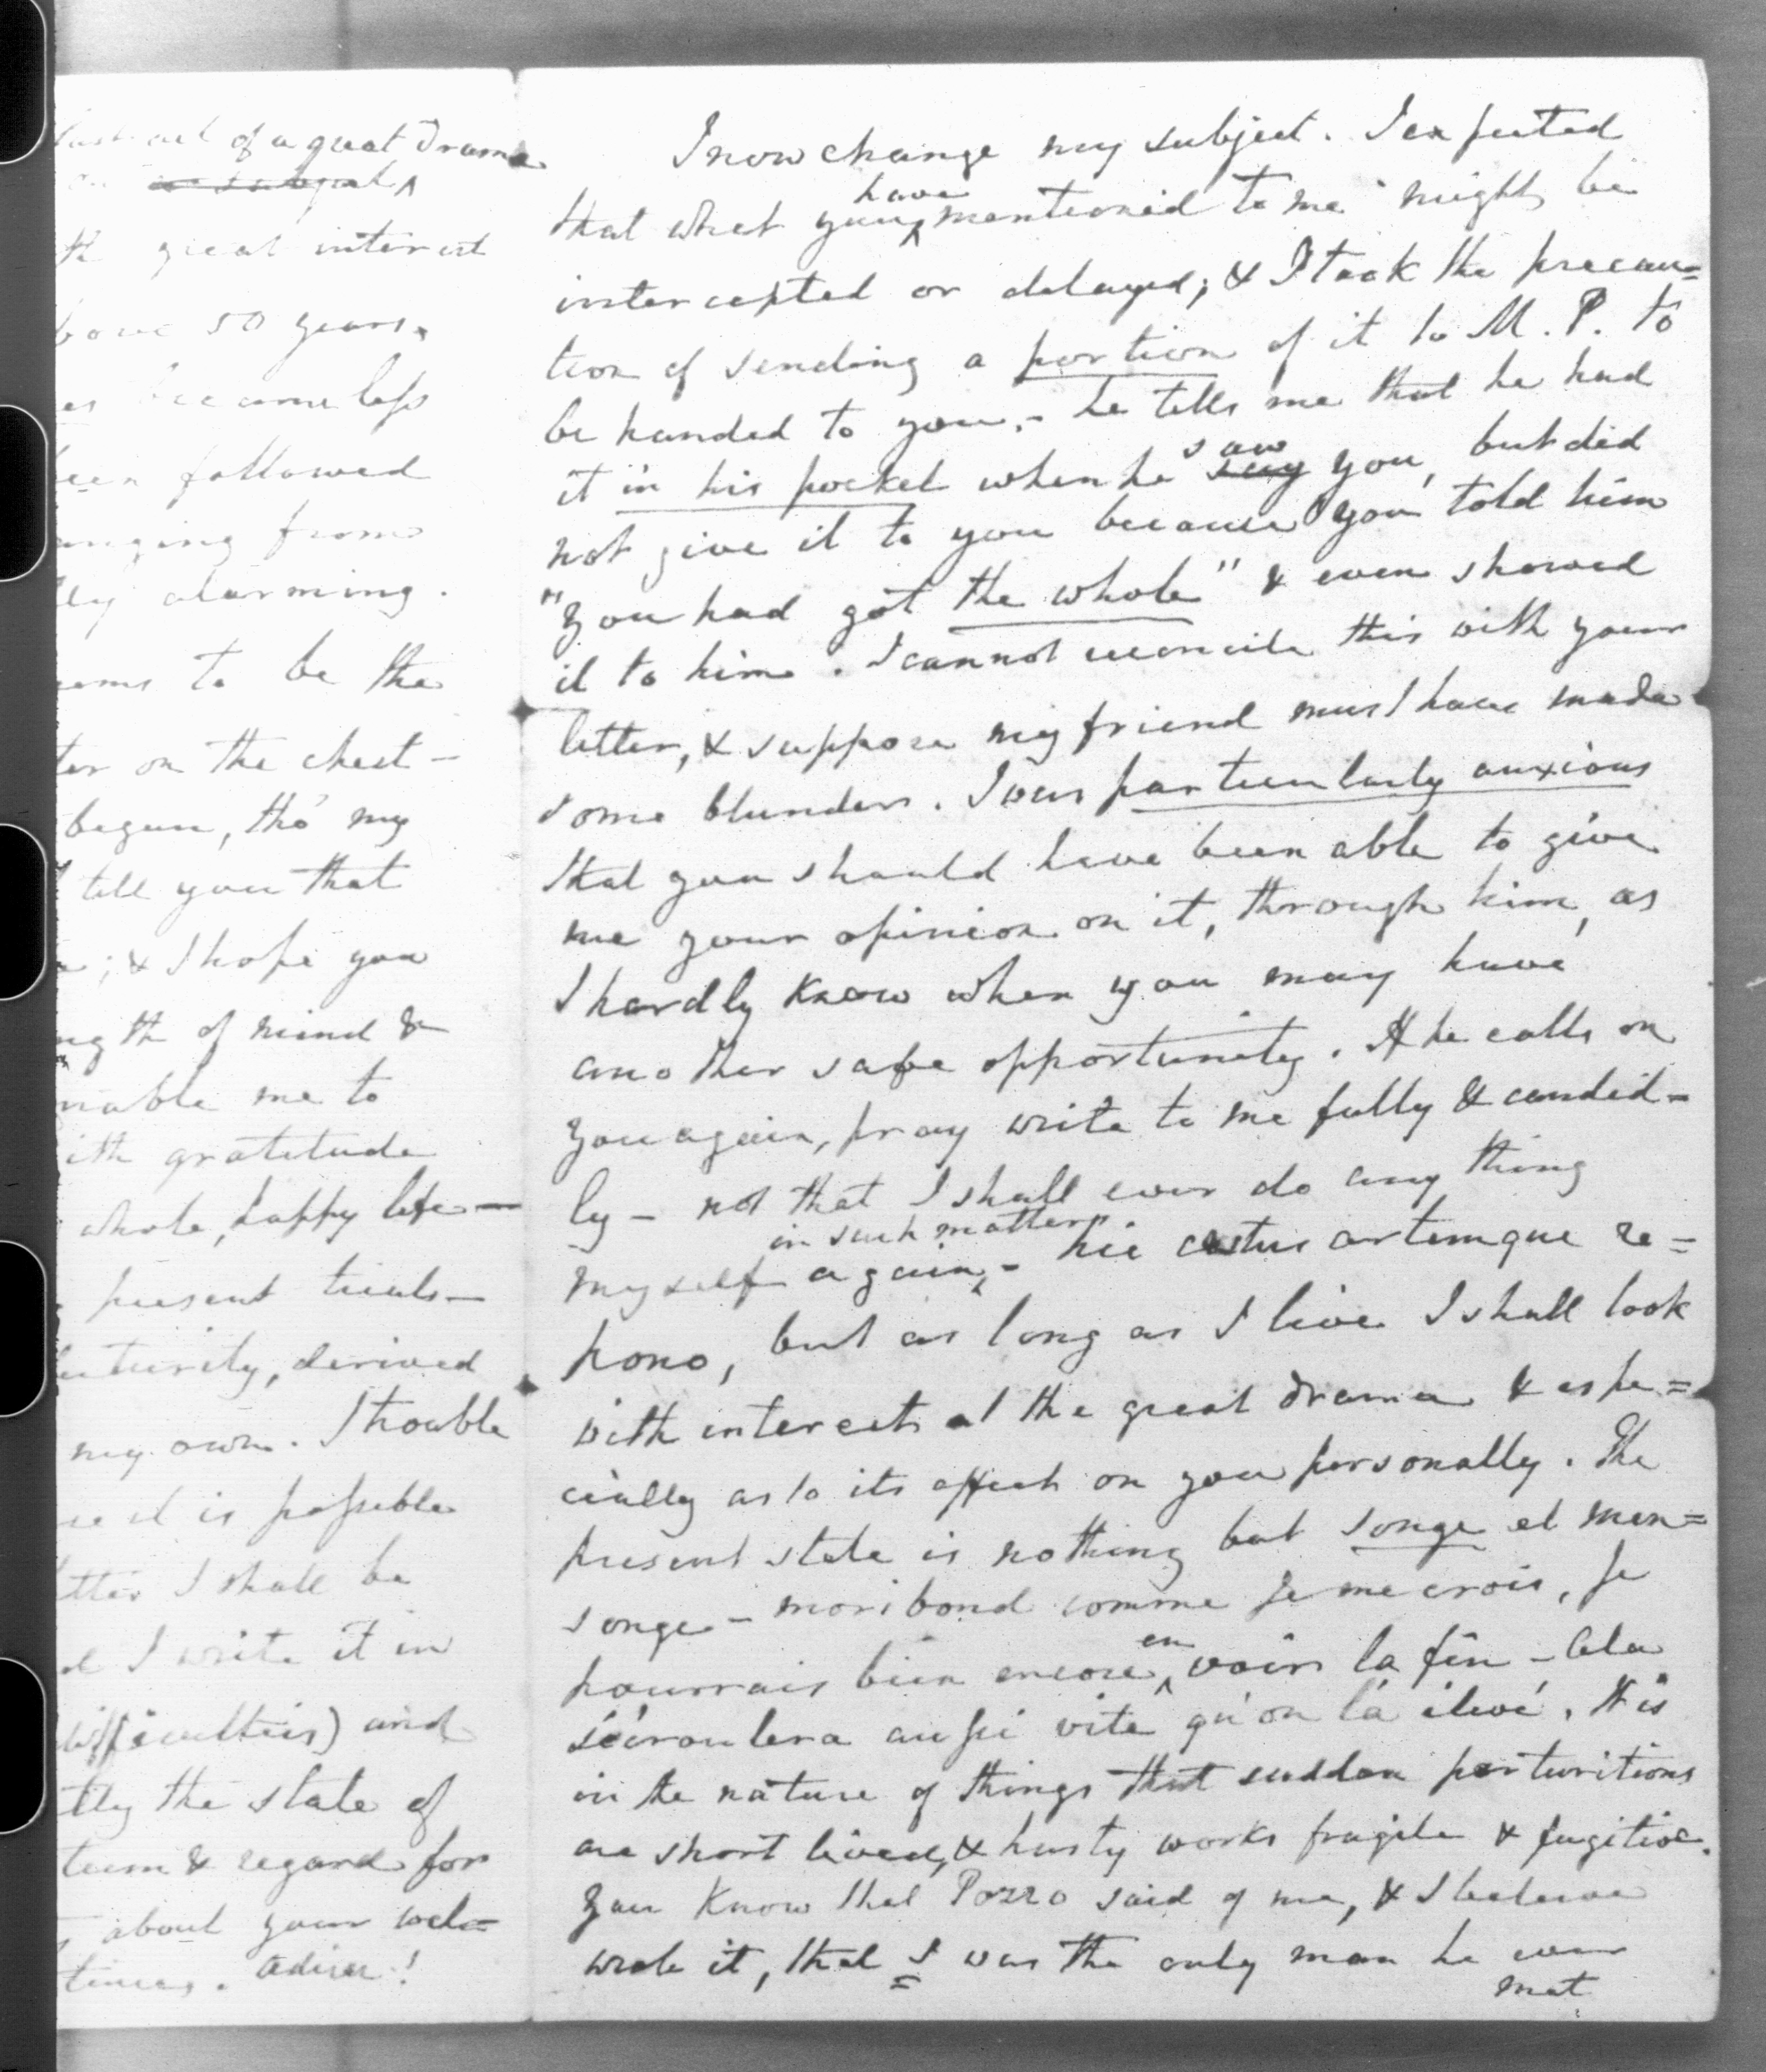 last act of a great Drama
on is subject
th great interest
bove 50 years.
es became less
een followed
anging from
lly alarming.
eems to be the
ter on the chest -
begun, tho' my
tell you that
; & I hope you
ngth of mind &
nable me to
ith gratitude
whole, happy life -
present trials -
uturity, derived
my own. I trouble
se it is possible
etter I shall be
d I write it in
difficulties) and
tly the state of
teem & regard for
about your wel=
times. adieu!
I now change my subject. I expected
that what you have mentioned to me might be
intercepted or delayed; & I took the precau=
tion of sending a portion of it to M. P. to
be handed to you. - he tells me that he had
it in his pocket when he say saw you, but did
not give it to you because you told him
"you had got the whole" & even showed
it to him. I cannot reconcile this with your
letter, & suppose my friend must have made
some blunders. I was particularly anxious
that you should have been able to give
me your opinion on it, through him, as
I hardly know when you may have
another safe opportunity. If he calls on
you again, pray write to me fully & candid-
ly - not that I shall ever do any thing
myself again in such matters. - hic cestus artemque re=
pono, but as long as I live I shall look
with interest at the great drama & espe=
cially as to its effect on you personally. The
present state is nothing but songe et men=
songe - moribond comme je me crois, je
pourrais bien encore en voir la fin - Cela
s'écroulera aussi vite qu'on l'a élevé. It is
in the nature of things that sudden parturitions
are short lived, & hasty works fragile & fugitive.
You know that Pozzo said of me, & I believe
wrote it, that I was the only man he ever
met